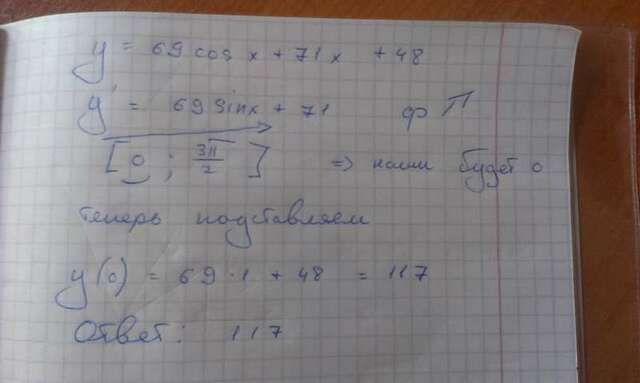 y = 69 cos x + 71x + 48
y' = 69 sin x + 71 ф
[0 ; 3π/2] => наим будет 0
теперь подставляем
y(0) = 69 · 1 + 48 = 117
Ответ: 117